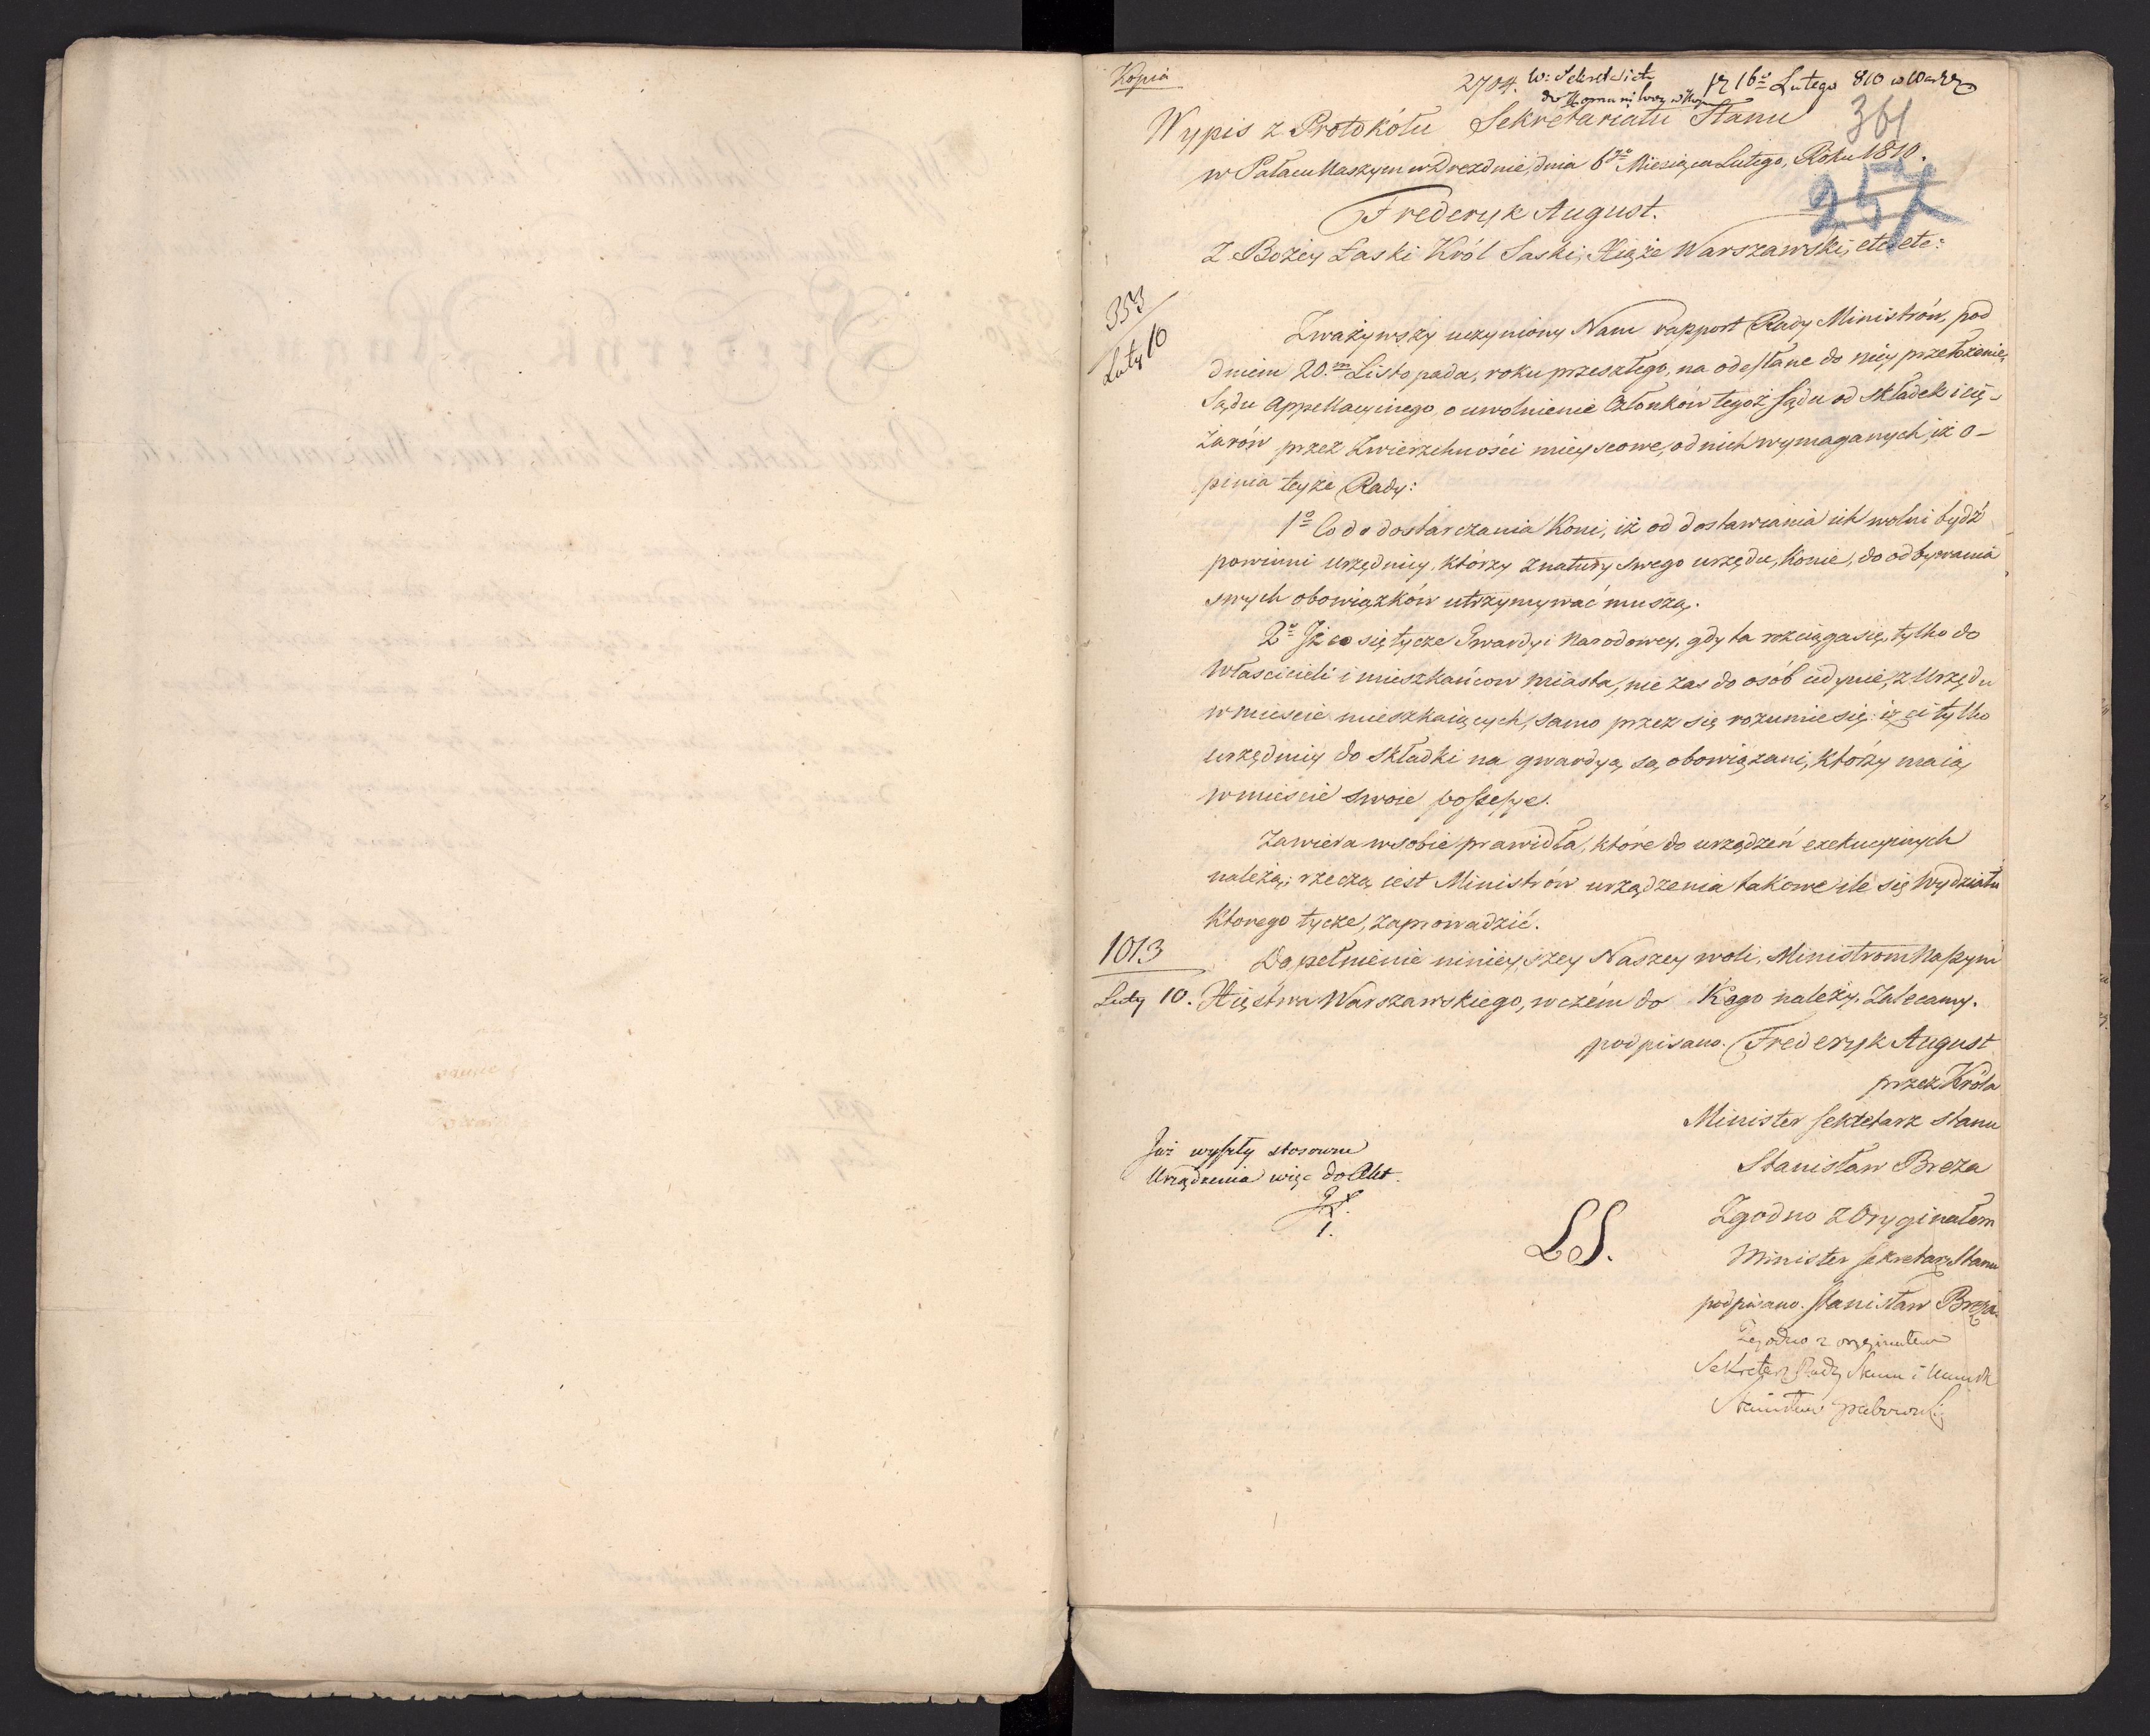 Kopia
2704. W: Sekretariats pr 16º Lutego 810 w
Wypis z Protokółu Sekretariatu Stanu
361
w Pałacu Naszym w Dreznie, dnia 6go Miesiąca Lutego, Roku 1810.
257
Frederyk August.
Z Bożey Łaski Król Saski, Xiąże Warszawski, etc: etc:
353
Luty 10
Zważywszy uczyniony Nam rapport Rady Ministrów, pod
dniem 20.m Listopada, roku przeszłego, na odesłane do niey przełożenie,
Sądu Appellacyinego, o uwolnienie Członków tegoż Sądu od składek i cię-
żarów przez Zwierzchności mieyscowe, od nich wymaganych, iż o-
pinia teyże Rady:
1º Co do dostarczania Koni, iż od dostawiania ich wolni bydź
powinni urzędnicy, którzy z natury swego urzędu, Konie, do odbywania
swych obowiązków utrzymywać muszą.
2º Iż co się tycze Gwardyi Narodowey, gdy ta rozciąga się, tylko do
Właścicieli i mieszkańcow miasta, nie zas do osób iedynie, z Urzędu
w mieście mieszkaiących, samo przez się rozumie się: iż ci tylko
urzędnicy do składki na gwardyą, są obowiązani, którzy maią
w mieście swoie possessye.
Zawiera w sobie prawidła, które do urządzeń exekucyinych
należą; rzeczą iest Ministrów urządzenia takowe ile się Wydziału
ktorego tycze, zaprowadzić.
1013
Luty 10.
Dopełnienie ninieyszey Naszey woli, Ministrom Naszym
Xięstwa Warszawskiego, w czém do Kogo należy. Zalecamy.
podpisano. Frederyk August
przez Króla
Minister Sekretarz Stanu
Stanisław Breza
Już wyszły stosowne
Urządzenia więc do Akt.
LS.
Zgodno z Oryginałem
Minister Sekretarz Stanu
podpisano. Stanisław Breza
Zgodno z oryginałem
Sekretarz Rady Stanu i
Stanisław Grabowski